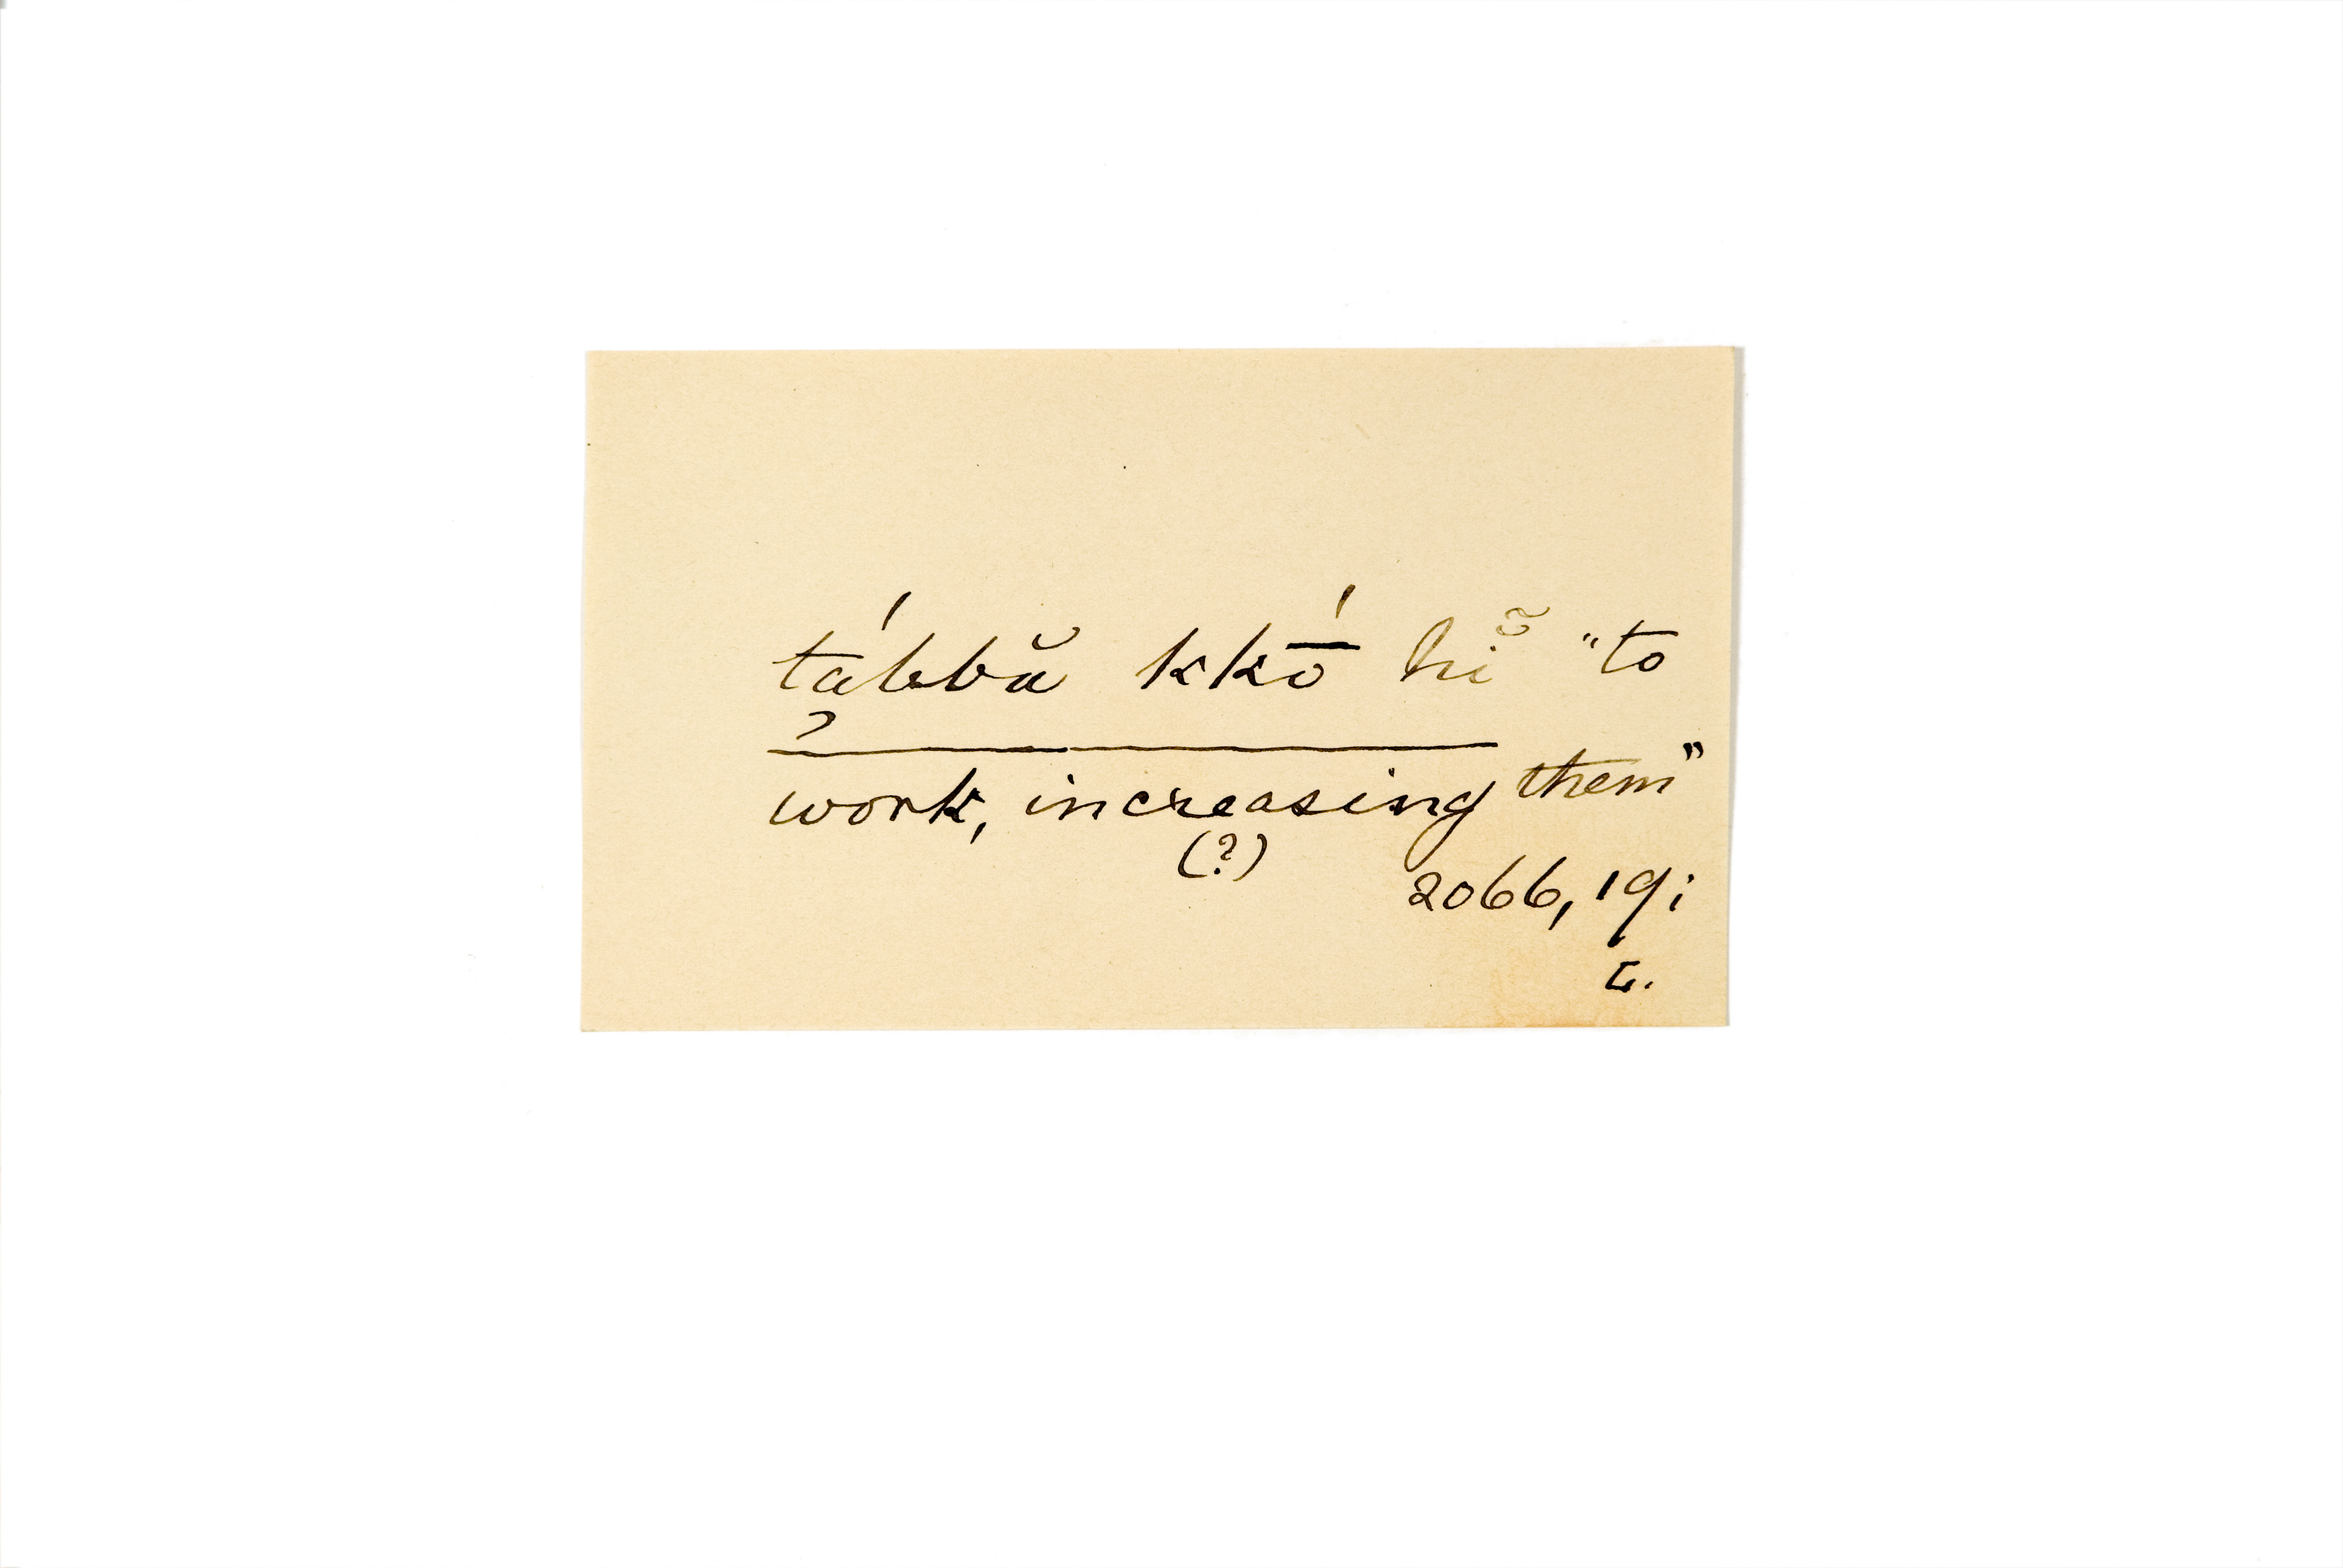 tábbŭ kkṓ hĭ̃ "to
?
work, increasing them"
(?)
2066, 19;